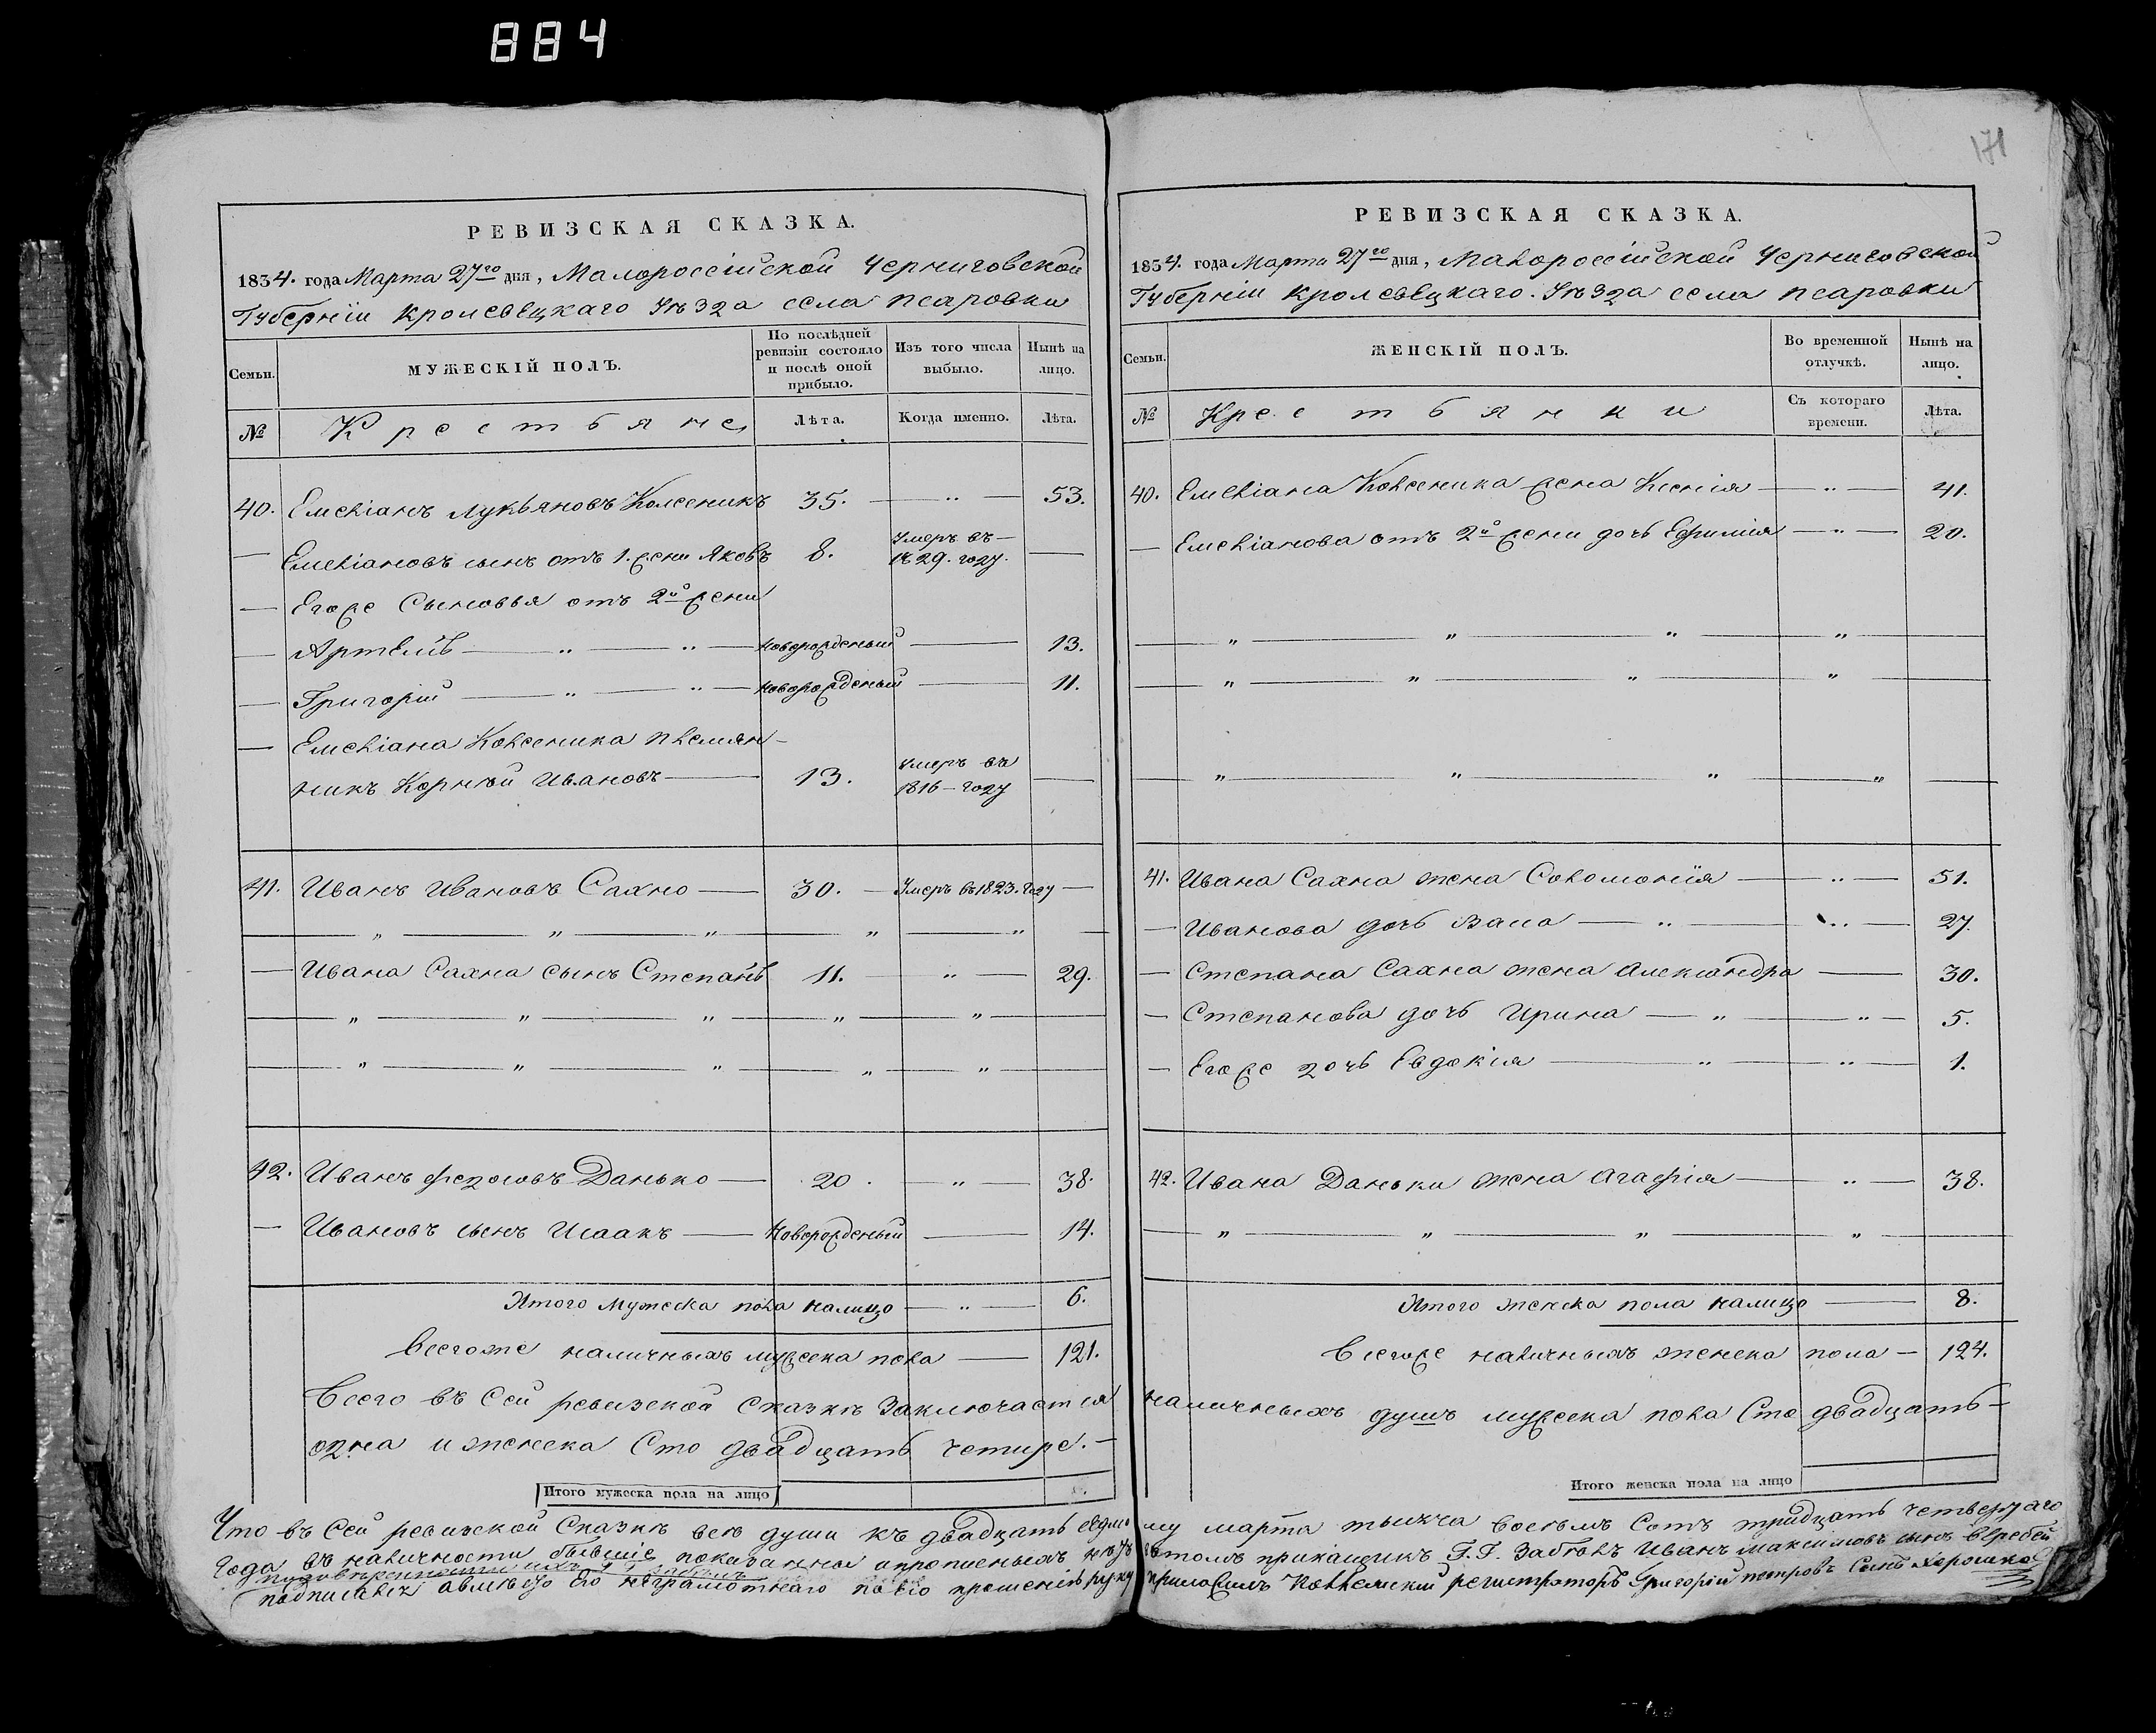 884
171
РЕВИЗСКАЯ СКАЗКА.
1834. года Марта 27го дня, Малороссійской Черниговской
Губерніи Кролевецкаго Уѣзда села Псаровки
Семьи.
МУЖЕСКІЙ ПОЛЪ.
По послѣдней ревизіи состояло и послѣ оной прибыло.
Изъ того числа выбыло.
Нынѣ на лицо.
№
Крестьяне
Лѣта.
Когда именно.
Лѣта.
40. Емеліанъ Лукьяновъ Колесникъ 35. — „ — 53.
— Емеліановъ сынъ отъ 1. жени Яковъ 8. Умеръ въ 1829. году. —
— Егоже Сыновья отъ 2й жени
— Артемій — „ — „ — новорожденый — 13.
— Григорій — „ — „ — новорожденый — 11.
— Емеліана Колесника племян-
никъ Корнѣй Ивановъ — 13. умеръ въ 1816 — году —
41. Иванъ Ивановъ Сахно — 30. — Умеръ въ 1823. году —
— „ — „ — „ — „ — „ —
— Ивана Сахна сынъ Степанъ 11. „ — 29.
— „ — „ — „ — „ — „ —
— „ — „ — „ — „ — „ —
42. Иванъ Федоровъ Данько — 20. „ — 38.
— Ивановъ сынъ Исаакъ — Новорожденый — 14.
Итого мужеска пола налицо — „ — 6.
Всегоже наличныхъ мужеска пола — 121.
Всего въ сей ревизской сказкѣ заключается
одна и женска Сто двадцать четире. —
Итого мужеска пола на лицо
РЕВИЗСКАЯ СКАЗКА.
1834. года Марта 27го дня, Малороссійской Черниговской
Губерніи Кролевецкаго. Уѣзда села Псаровки
Семьи.
ЖЕНСКІЙ ПОЛЪ.
Во временной отлучкѣ.
Нынѣ на лицо.
№
Крестьянки
Съ котораго времени.
Лѣта.
40. Емеліана Колесника жена Ксенія — „ — 41.
— Емеліанова отъ 2й жени дочь Ефимія — „ — 20.
— „ — „ — „ — „ —
— „ — „ — „ — „ —
„ — „ — „ — „ —
41. Ивана Сахна жена Соломонія — „ — 51.
— Иванова дочь Васа — „ — „ — 27.
— Степана Сахна жена Александра — 30.
— Степанова дочь Ирина — „ — „ — 5.
— Егоже дочь Евдокія — „ — „ — 1.
42. Ивана Даньки жена Агафія — „ — 38.
— „ — „ — „ — „ —
Итого женска пола налицо — 8.
Всегоже наличныхъ женска пола — 124.
наличныхъ душъ мужеска пола Сто двадцать —
Итого женска пола на лицо
Что въ Сей ревизской Сказкѣ всѣ души къ двадцать седмому марта тысяча восемь Сотъ тридцать четвертаго
года въ наличности бывшіе показанны а прописныхъ нѣтъ въ томъ прикащикъ Г. Г. Иванъ Максимовъ сынъ
подписался а вмѣсто его неграмотнаго по его прошенію руку приложилъ Коллежскій регистраторъ Григорій Петровъ Синъ